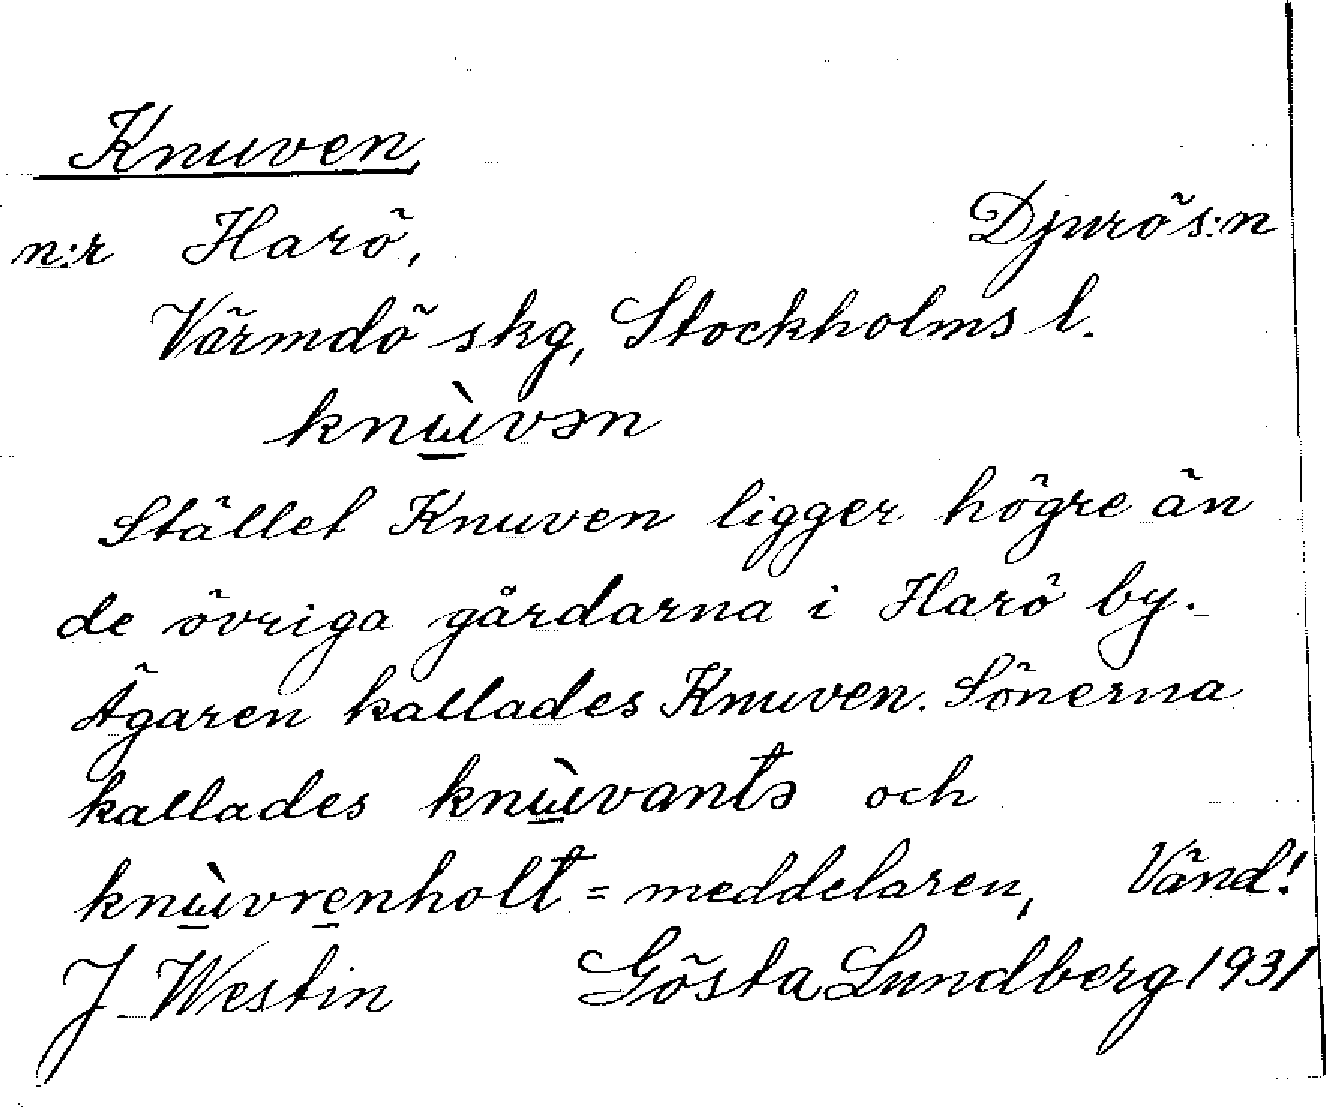 Knuven,
n:r Harö, Djurö s:n
Värmdö skg, Stockholms l.
knɯ̀vən
Stället Knuven ligger högre än
de övriga gårdarna i Harö by.
Ägaren kallades Knuven. Sönerna
kallades knɯ̀vantə och
knɯ̀vrenholt = meddelaren, Vänd!
J Westin Gösta Lundberg 1931